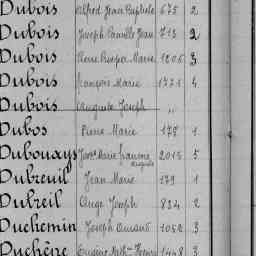 Dubois Alfred Jean Baptiste 675 2
Dubois Joseph Camille Jean 713 2
Dubois Pierre Prosper Marie 1206 3
Dubois François Marie 1771 4
Dubois Auguste Joseph "
Dubos Pierre Marie 178 1
Dubouays Marie François Auguste 2015 5
Dubreuil Jean Marie 179 1
Dubreil Ange Joseph 824 2
Duchemin Joseph Amand 1052 3
Duchêne Eugène Henri 1498 3